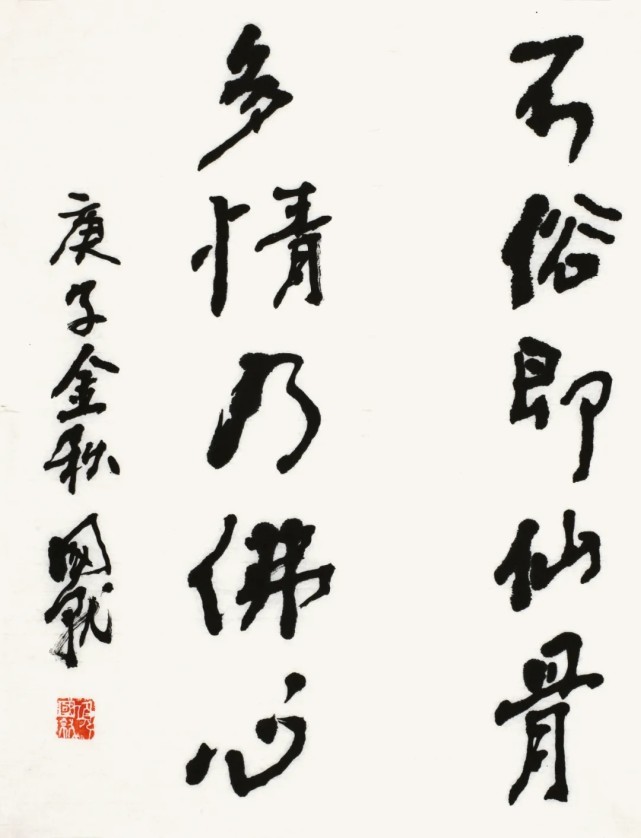 不俗即仙骨
多情乃佛心
庚子金秋